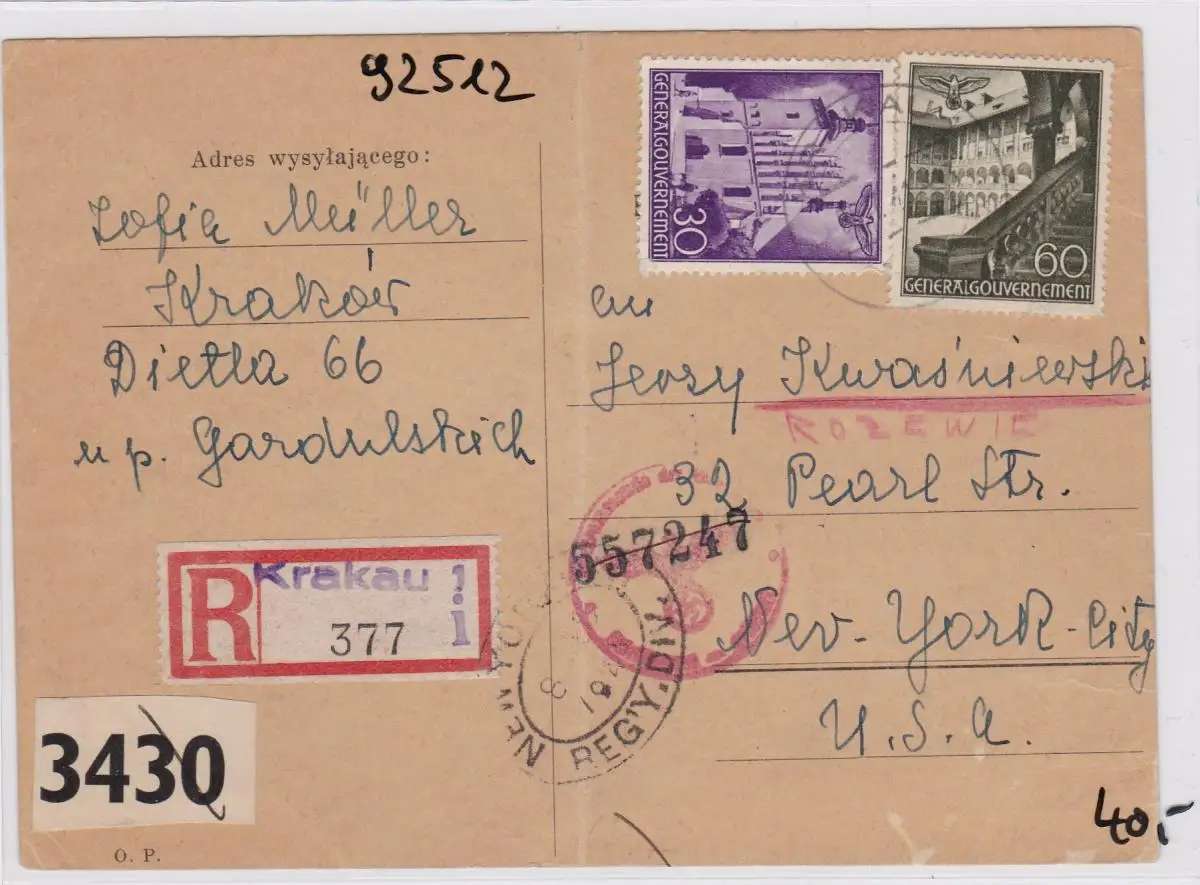 92512
Adres wysyłającego:
Zofia Müller
Kraków
Dietla 66
u p. Gardulskich
R
Krakau 1
377
i
3430
O. P.
GENERALGOUVERNEMENT
30
60
GENERALGOUVERNEMENT
an
Jerzy Kwaśniewski
ROZEWIE
32 Pearl Str.
557247
NEW YOR REG'Y. DIV.
Nev-York-City
U.S.A.
40,-